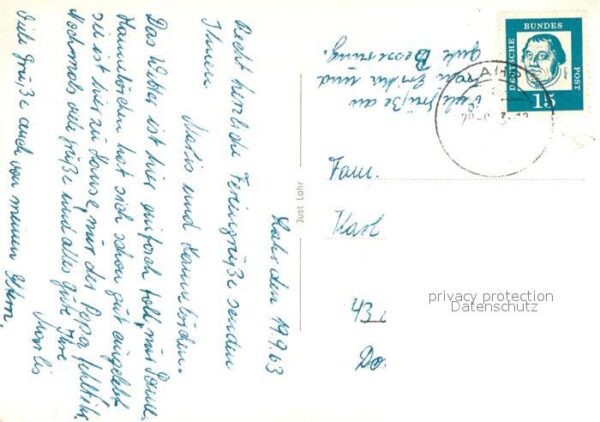 Lahr den 19.9.63
Recht herzliche Feriengrüße senden
Ihnen
Marlis und Hannelörchen.
Das Wetter ist hier einfach toll, nur Sonne.
Hannelörchen hat sich schon gut eingelebt
sie ist hier zu Hause, nur der Papa fehlt ihr.
Nochmals viele Grüße und alles Gute Ihre
Marlis
Viele Grüße auch von meinen Eltern.
Viele Grüße an
und
gute Besserung.
Just Lahr
DEUTSCHE
BUNDES
POST
15
LAHR
Fam.
Karl
43
Do
privacy protection
Datenschutz